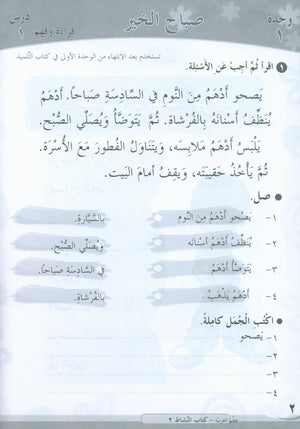 وحدة ١
صباح الخير
درس ١
قراءة وفهم
تستخدم بعد الانتهاء من الوحدة الأولى في كتاب التلميذ
١ اقرأ ثُمَّ أجِبْ عَنِ الأَسْئِلة.
يَصحو أَدْهَمُ مِنَ النَّومِ في السَّادِسَةِ صَباحًا. أَدْهَمُ
يُنَظِّفُ أَسْنانَهُ بِالفُرْشاةِ. ثُمَّ يَتَوَضَّأُ وَيُصَلِّي الصُّبْحَ.
يَلْبَسُ أَدْهَمُ مَلابِسَه، وَيَتَناوَلُ الفُطورَ مَعَ الأُسْرَة.
ثُمَّ يَأْخُذُ حَقيبَتَه، وَيَقِفُ أَمامَ البَيت.
صل.
١– يَصْحو أَدْهَمُ مِنَ النَّومِ بِالسَّيَّارَةِ.
٢– يُنَظِّفُ أَدْهَمُ أَسْنانَه وَيُصَلِّي الصُّبْحَ.
٣– يَتَوَضَّأُ أَدْهَمُ في السَّادِسَةِ صَباحًا.
٤– أَدْهَمُ يَذْهَبُ . بِالفُرْشاةِ.
اكْتُبِ الجُمَلَ كامِلةً.
١– يَصْحو
٢–
٣–
٤–
٢
كتاب النشاط ٢